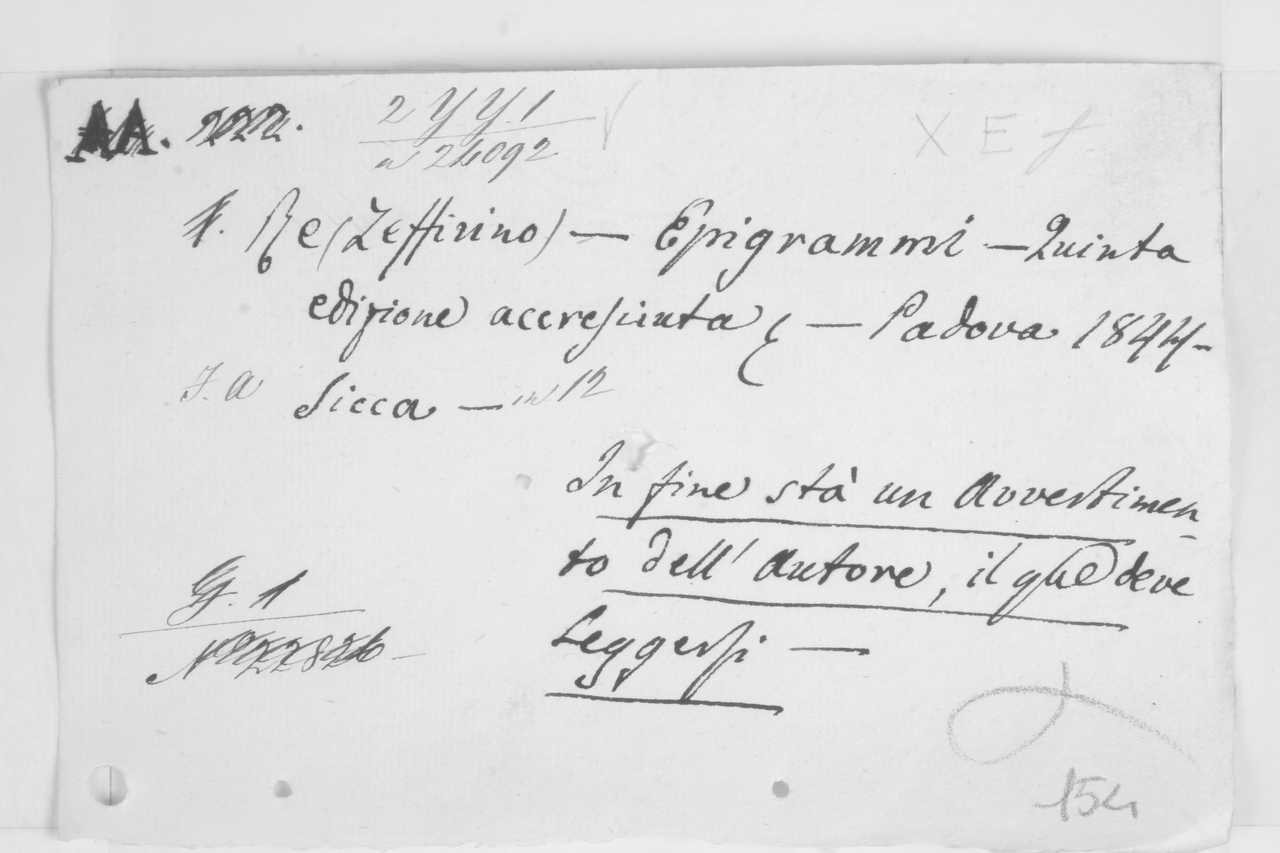 AA. 222.
2 Y Y. 1
24092
X E f.
Re (Zeffirino) — Epigrammi — Quinta
edizione accresciuta — Padova 1844 -
Sicca — in 12
In fine stà un Avvertimen
to dell' Autore, il qle deve
Leggersi —
G. 1
154